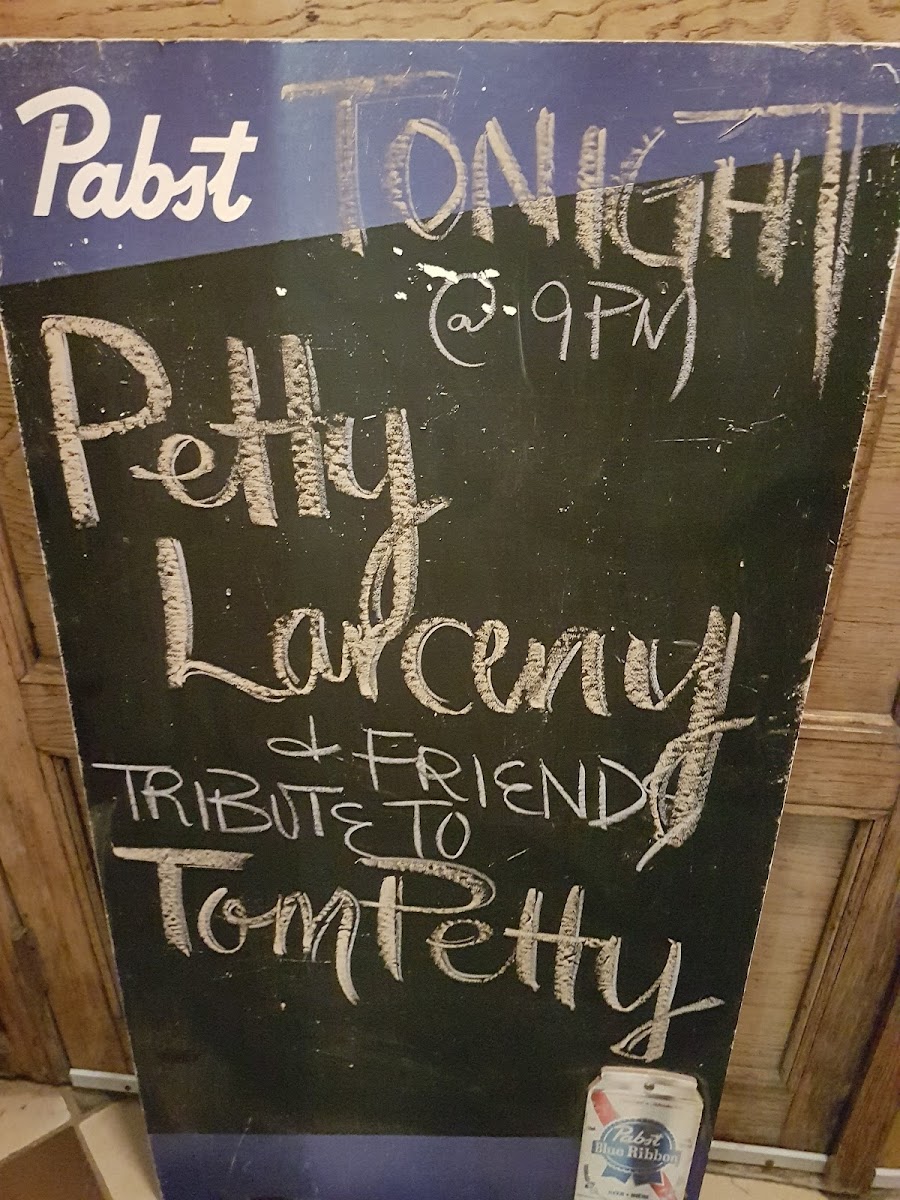 Pabst
TONIGHT
@ 9PM
Petty
Larceny
& FRIENDS
TRIBUTE TO
Tom Petty
Pabst
Blue Ribbon